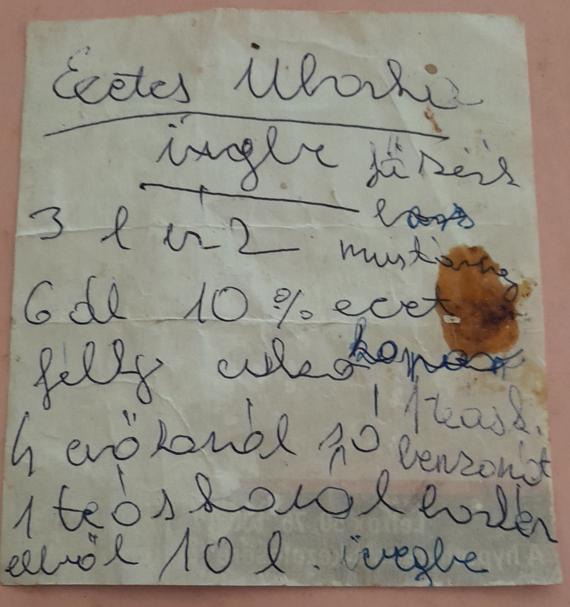 Ecetes Uborka
üvegbe fűszerk
3 l víz
mustármag
6 dl 10 % ecet
félkg cukor kapor
4 evőkanál só 1 teásk.
benzonát
1 teáskanál borkén
ebből 10 l. üvegbe